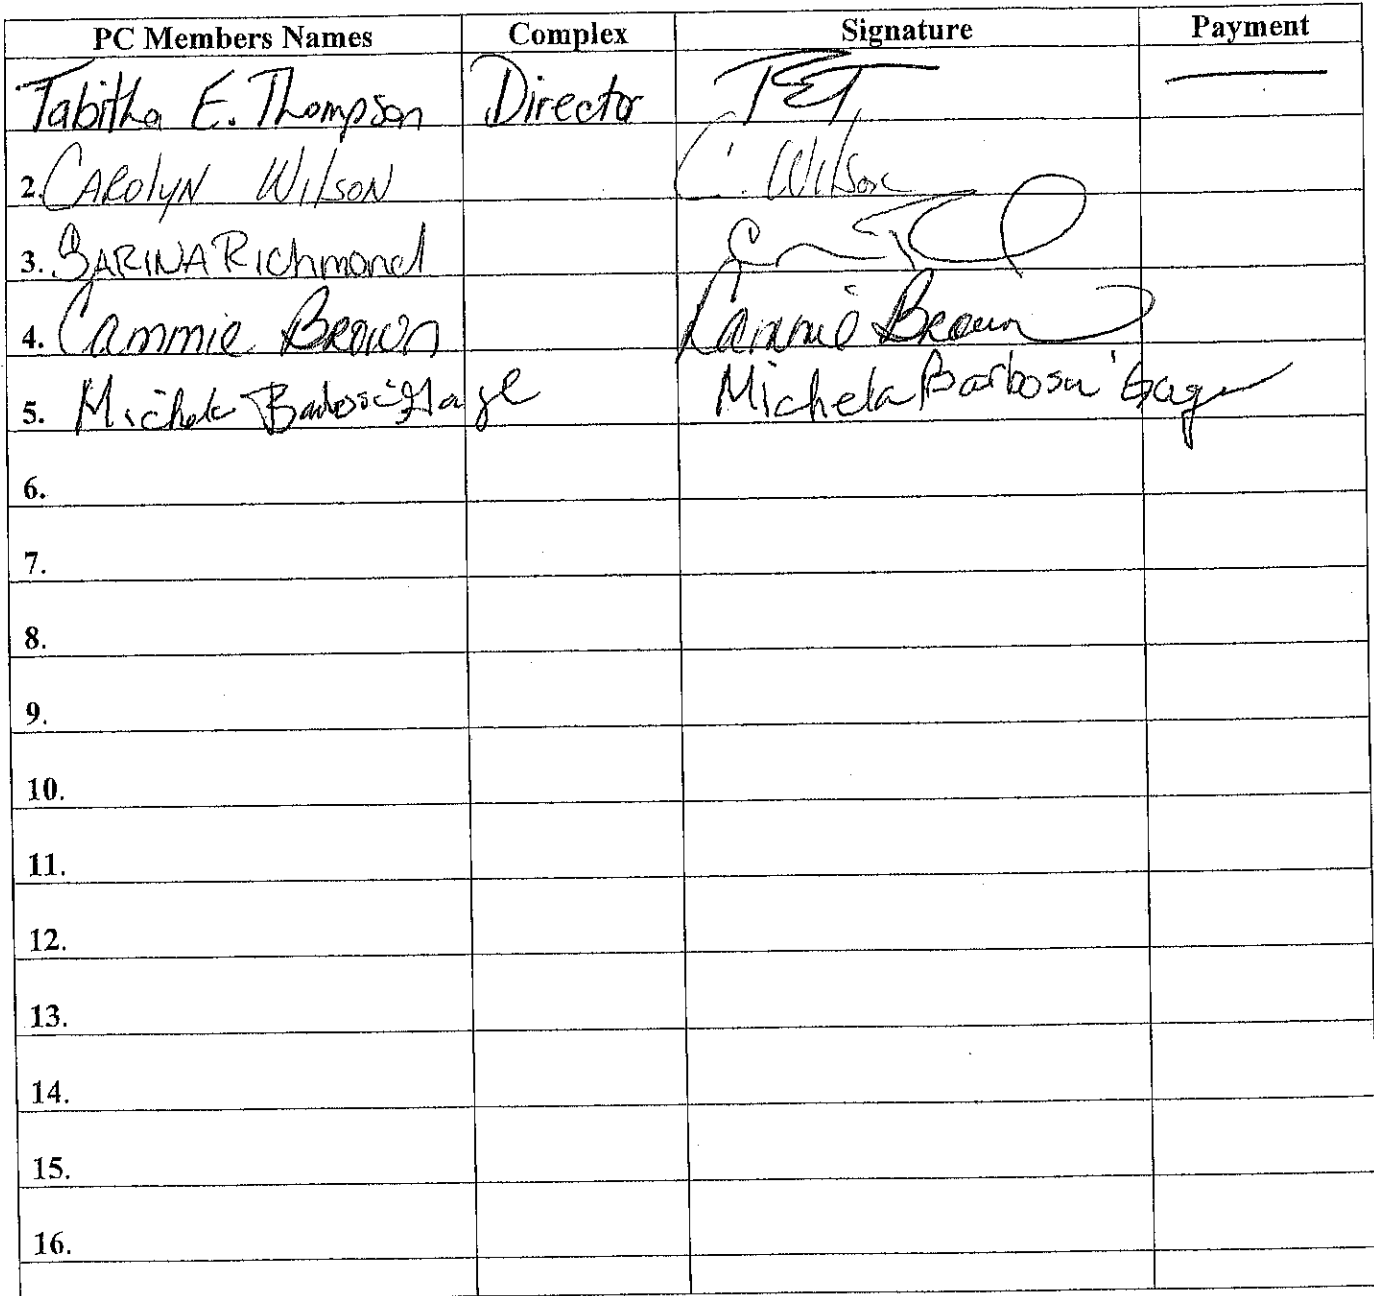 PC Members Names Complex Signature Payment
Tabitha E. Thompson Director TET
2. CAROLYN WILSON C. Wilson
3. SARINA RICHMOND
4. Cammie Brown Cammie Brown
5. Michela Barbosa Michela Barbosa
6.
7.
8.
9.
10.
11.
12.
13.
14.
15.
16.